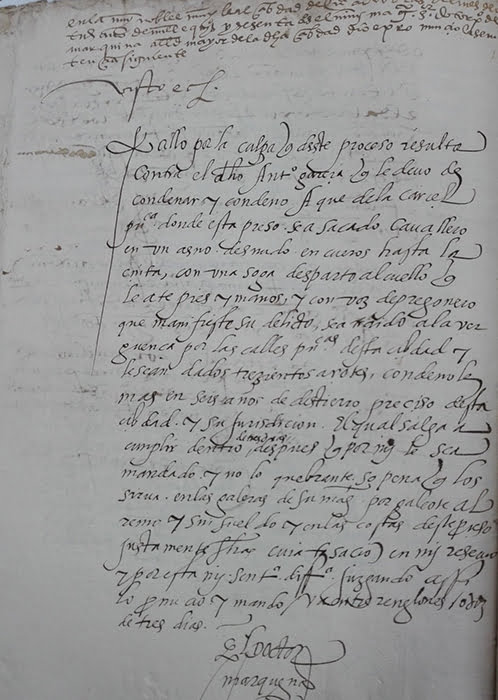 en la muy noble e muy leal cibdad de
tus año de mill e quis y sesenta
marquina alld mayor de la dha cibdad dio e pronunció la sen
tencia siguiente
Visto etc.
Fallo por la culpa q deste proceso resulta
contra el dho Anto garcia q le devo de
condenar y condeno A que de la carcel
puca donde esta preso sea sacado cavallero
en un asno desnudo en cueros hasta la
cinta, con una soga desparto al cuello q
le ate pies y manos, y con voz de pregonero
que manifieste su delicto, sea traido a la ver
guenca por las calles pucas desta cibdad y
le sean dados trezientos açotes, condenole
mas en seis años de destierro preciso desta
cibdad y su jurisdicion el qual salga a
cumplir dentro de tres dias despues q por my le sea
mandado y no lo quebrante so pena q los
sirva en las galeras de su mag por galeote al
remo y sin sueldo y en las costas deste proceso
justamente hechas cuia tasacio en my reservo
y por esta my senta diffa juzgando assi
lo pronuncio y mando va entre renglones
de tres dias.
El Doctor
marquina